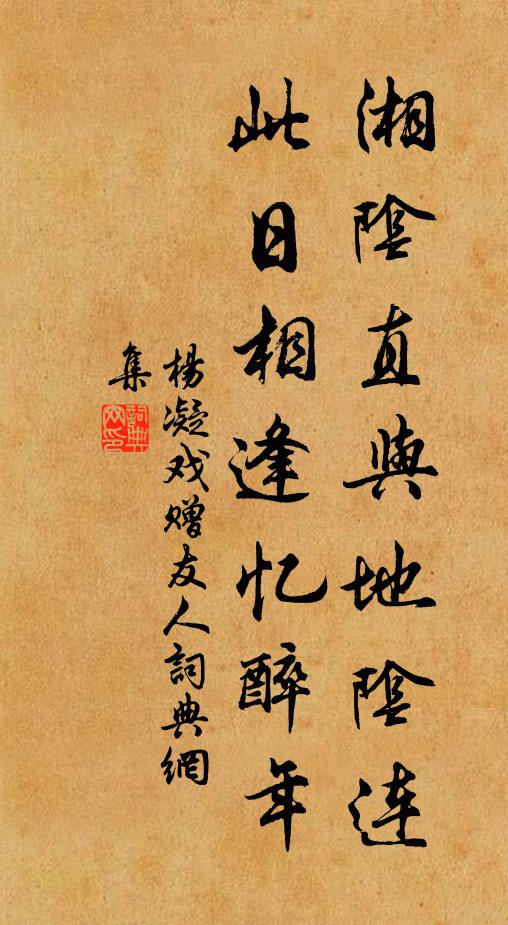 湘陰直與地陰连
此日相逢忆醉年
楊凝戏赠友人詞典網
集
詞典
网印